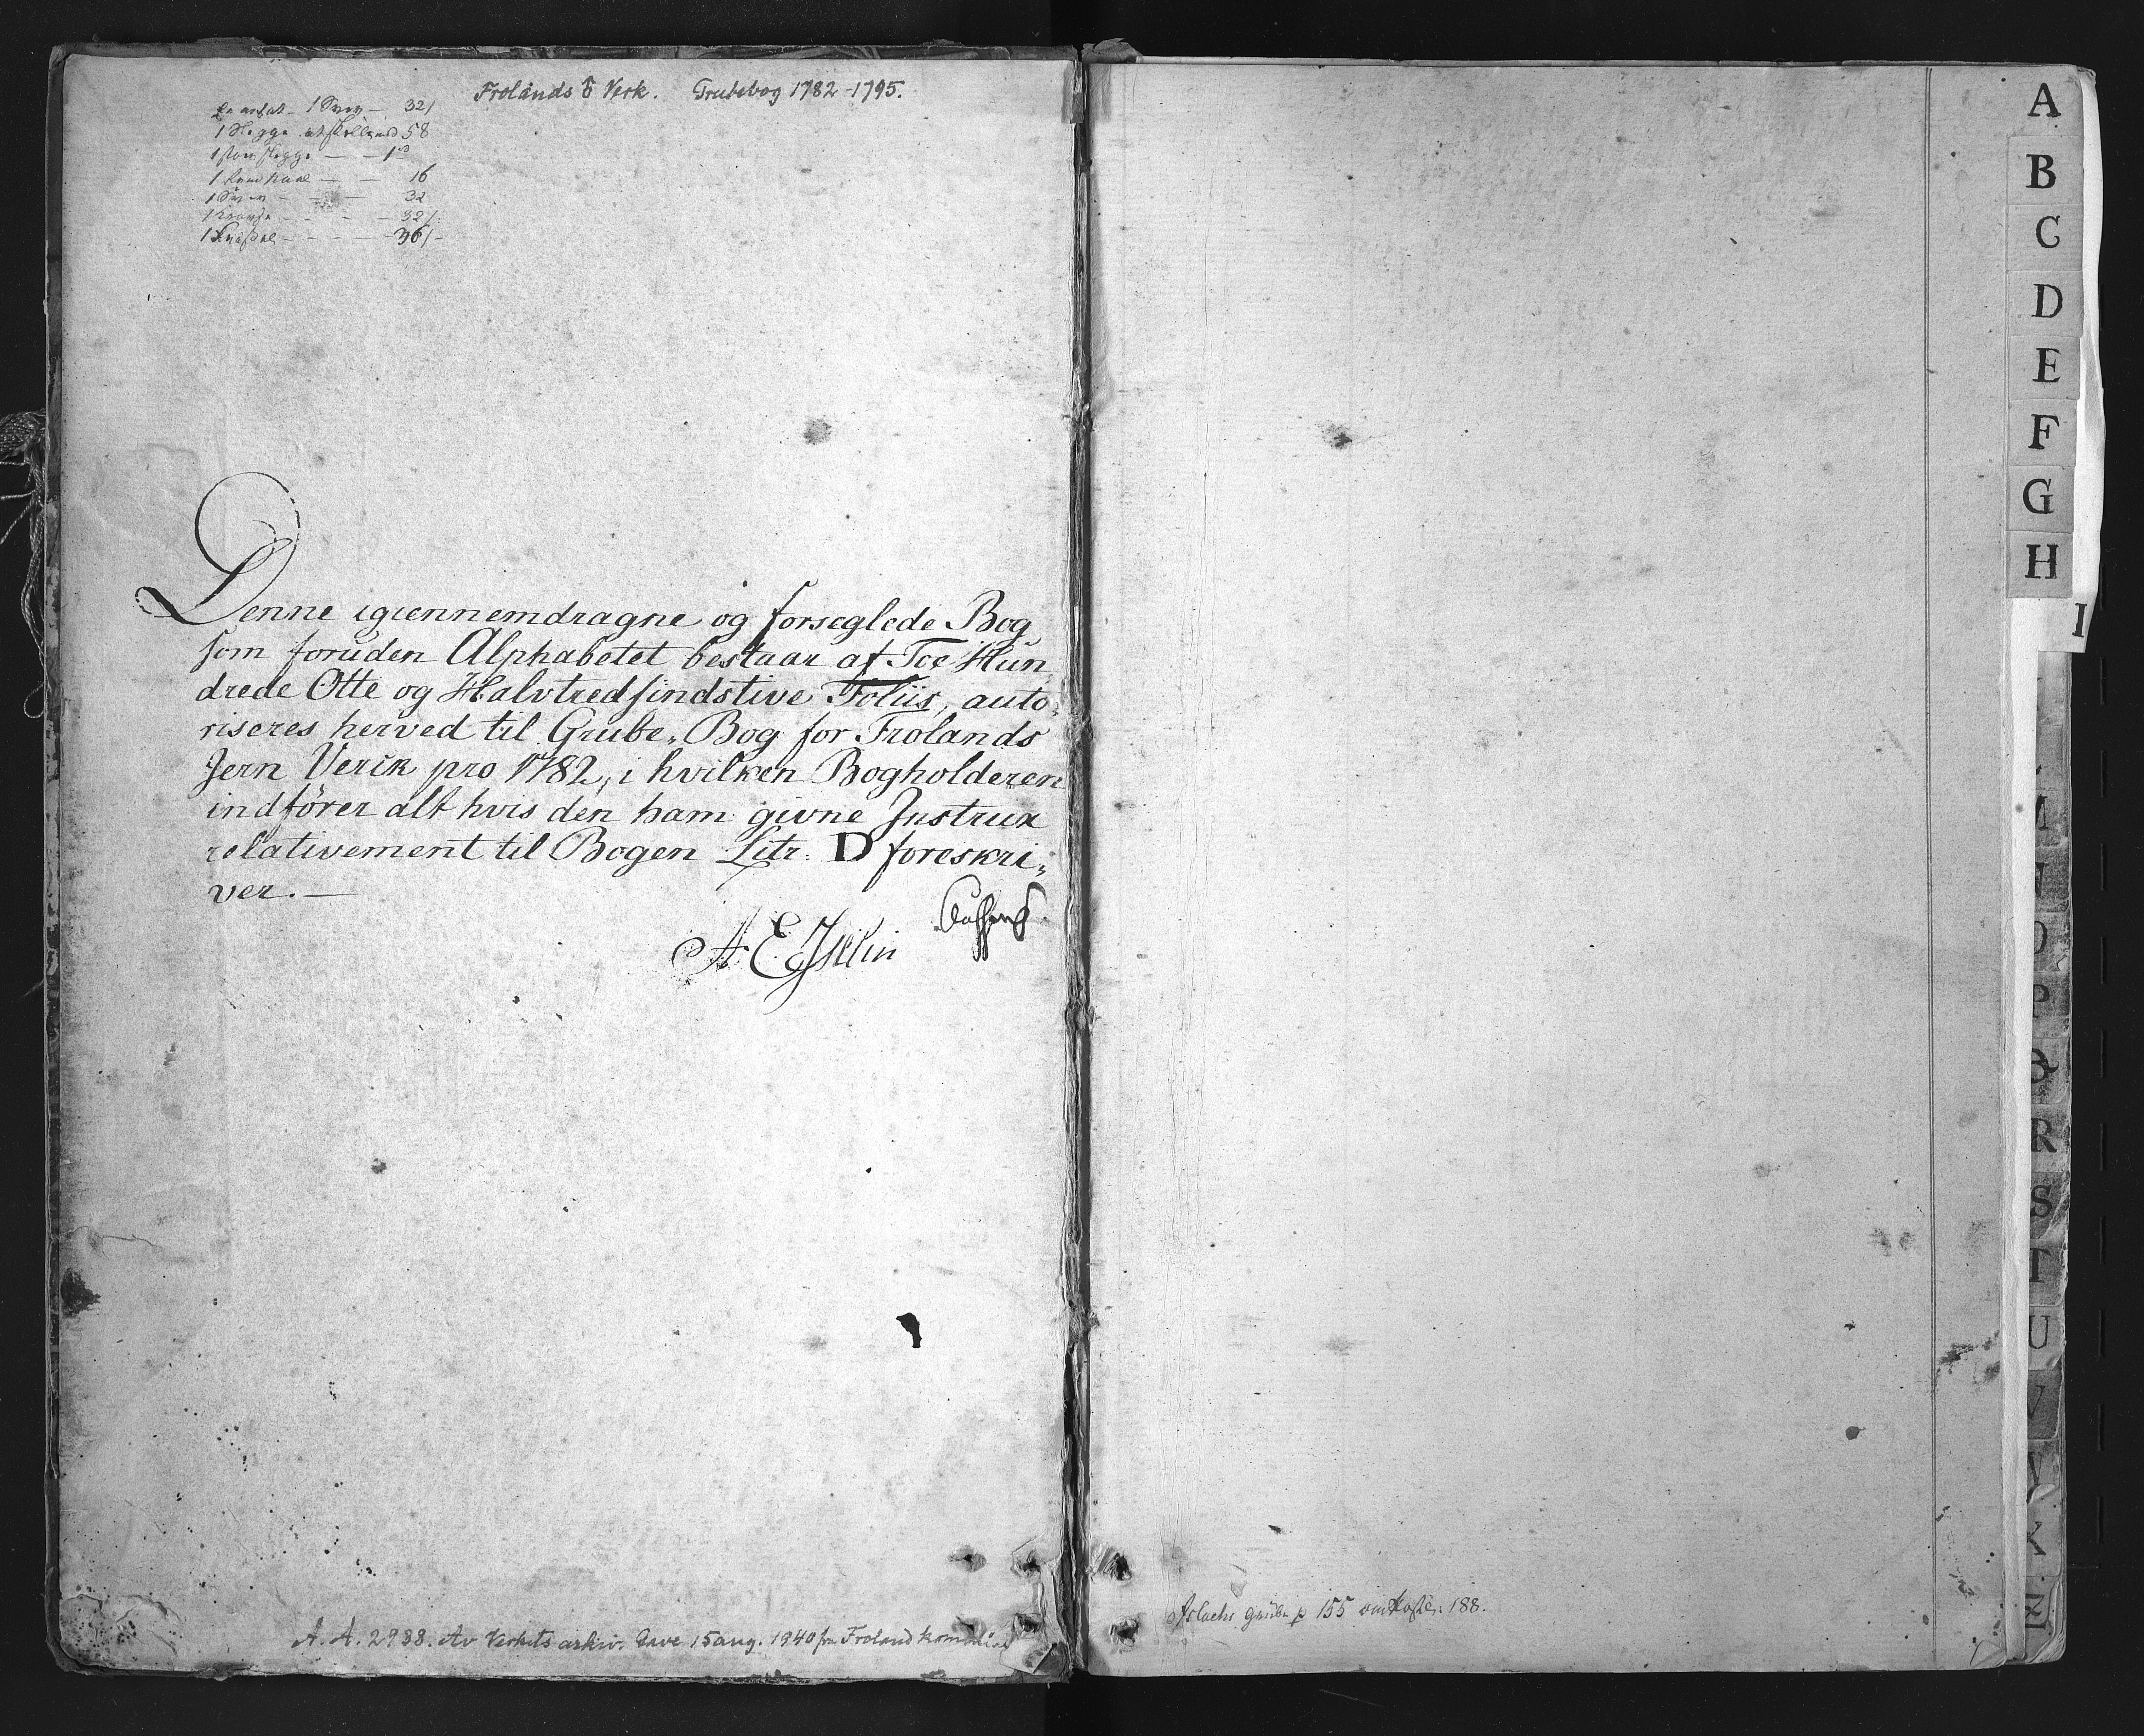 Frolands Verk. Grubebog 1782-1795.
1 32
1 58
1
1 16
1 32
1 32
1 36
Denne igiennemdragne og forseglede Bog
som foruden Alphabetet bestaar af Toe Hun
drede Otte og Halvtredsindstive Foliis, auto-
riseres herved til Grube-Bog for Frolands
Jern Verck pro 1782, i hvilken Bogholderen
indfører alt hvis den ham givne Instrux
relativement til Bogen Litr: D foreskri-
ver.—
A. E.
A. A. 2988. Av Verkets arkiv. Gave 15 aug. 1940 fra Froland kommune
Aslachs Grube p 155 188.
A
B
C
D
E
F
G
H
I
M
N
O
P
Q
R
S
T
U
V
W
X
Z